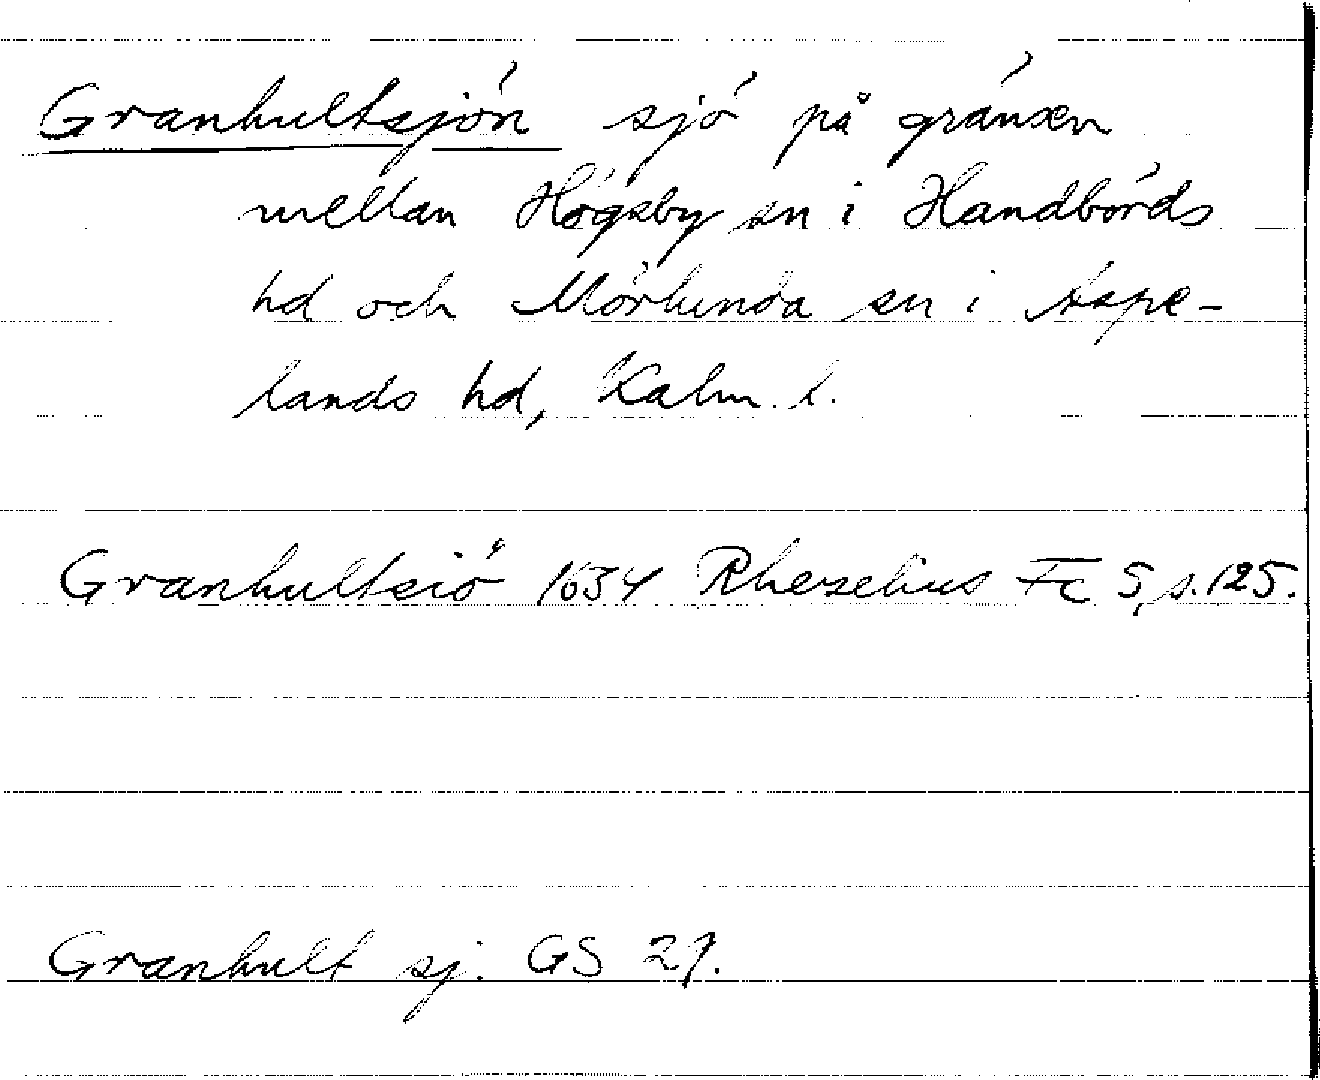 Granhultsjön sjö på gränsen
mellan Högsby sn i Handbörds
hd och Mörlunda sn i Aspe-
lands hd, Kalm. l.
Granhultsiö 1634 Rhezelius Fc 5, s. 125.
Granhult sj. GS 29.